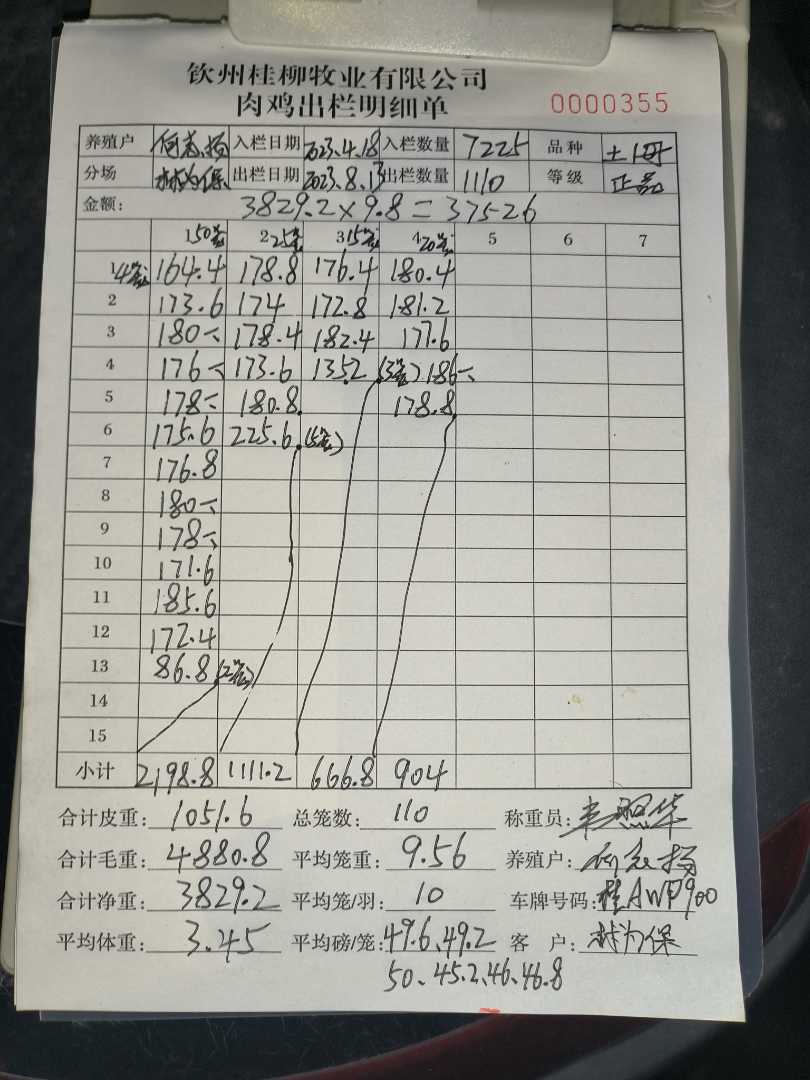 钦州桂柳牧业有限公司
肉鸡出栏明细单 0000355
养殖户 何志扬 入栏日期 2023.4.18 入栏数量 7225 品种 土1号
分场 林为保 出栏日期 2023.8.13 出栏数量 1110 等级 正品
金额: 3829.2×9.8=37526
1 50笼 2 25笼 3 15笼 4 20笼 5 6 7
1 4笼 164.4 178.8 176.4 180.4
2 173.6 174 172.8 181.2
3 180 178.4 182.4 177.6
4 176 173.6 135.2 (3笼) 186
5 178 180.8 178.8
6 175.6 225.6 (5笼)
7 176.8
8 180
9 178
10 171.6
11 185.6
12 172.4
13 86.8 (2笼)
14
15
小计 2198.8 1111.2 666.8 904
合计皮重: 1051.6 总笼数: 110 称重员:
合计毛重: 4880.8 平均笼重: 9.56 养殖户: 何志扬
合计净重: 3829.2 平均笼/羽: 10 车牌号码: 桂AWP900
平均体重: 3.45 平均磅/笼: 49.6、49.2 客户: 林为保
50、45.2、46、46.8